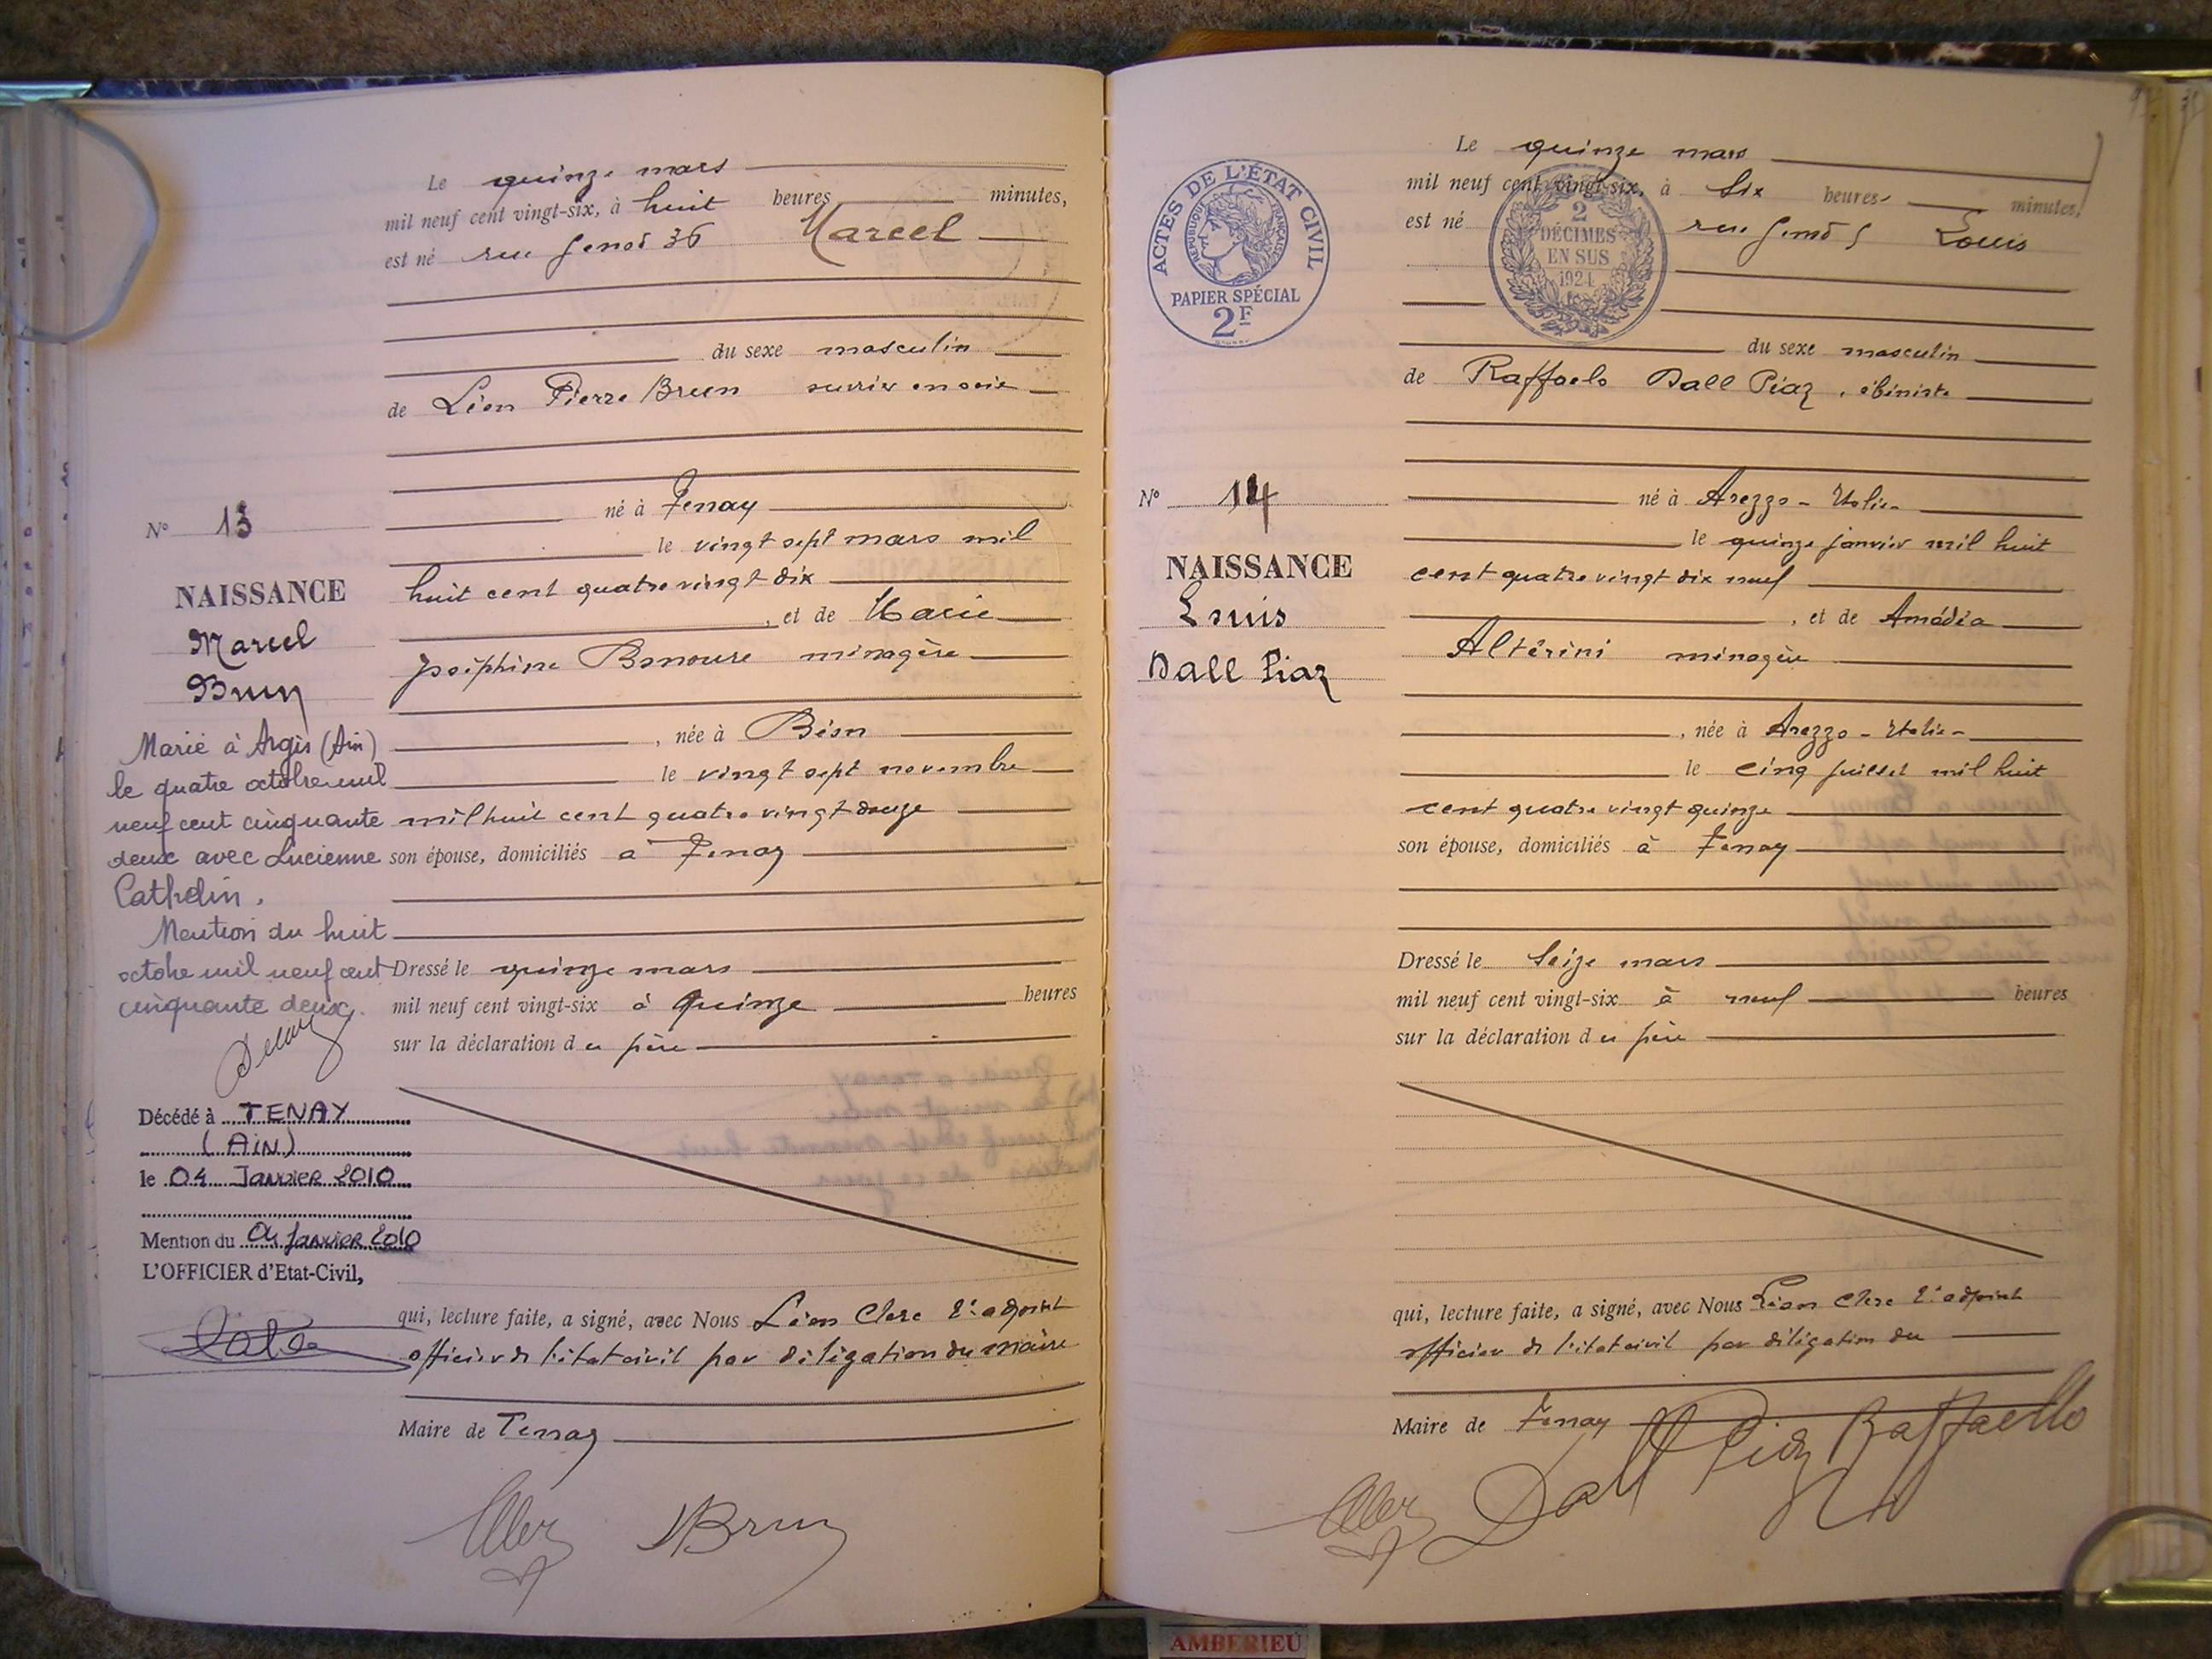 Le quinze mars
mil neuf cent vingt-six, à huit heures minutes,
est né rue Genod 36 Marcel
du sexe masculin
de Léon Pierre Brun ouvrier en soie
né à Tenay
le vingt sept mars mil
huit cent quatre vingt dix
, et de Marie
Joséphine ménagère
, née à Béon
le vingt sept novembre
mil huit cent quatre vingt douze
son épouse, domiciliés à Tenay
Dressé le quinze mars
mil neuf cent vingt-six à quinze heures
sur la déclaration du père
qui, lecture faite, a signé, avec Nous Léon Clerc 2e adjoint
officier de l'état civil par délégation du maire
Maire de Tenay
Brun
N° 13
NAISSANCE
Marcel
Brun
Marié à Argis (Ain)
le quatre octobre mil
neuf cent cinquante
deux avec Lucienne
Cathelin.
Mention du huit
octobre mil neuf cent
cinquante deux.
Décédé à TENAY
(AIN)
le 04 JANVIER 2010
Mention du JANVIER 2010
L'OFFICIER d'Etat-Civil,
ACTES DE L'ÉTAT CIVIL
RÉPUBLIQUE FRANÇAISE
PAPIER SPÉCIAL
2F
2
DÉCIMES
EN SUS
1924
Le quinze mars
mil neuf cent vingt-six, à six heures minutes,
est né rue Genod 5 Louis
du sexe masculin
de Raffaelo Dall Piaz, ébéniste
né à Arezzo - Italie -
le quinze janvier mil huit
cent quatre vingt dix neuf
, et de Amédéa
Altérini ménagère
, née à Arezzo - Italie -
le cinq juillet mil huit
cent quatre vingt quinze
son épouse, domiciliés à Tenay
Dressé le seize mars
mil neuf cent vingt-six à neuf heures
sur la déclaration du père
qui, lecture faite, a signé, avec Nous Léon Clerc 2e adjoint
officier de l'état civil par délégation du
Maire de Tenay
Dall Piaz Raffaello
N° 14
NAISSANCE
Louis
Dall Piaz
AMBERIEU